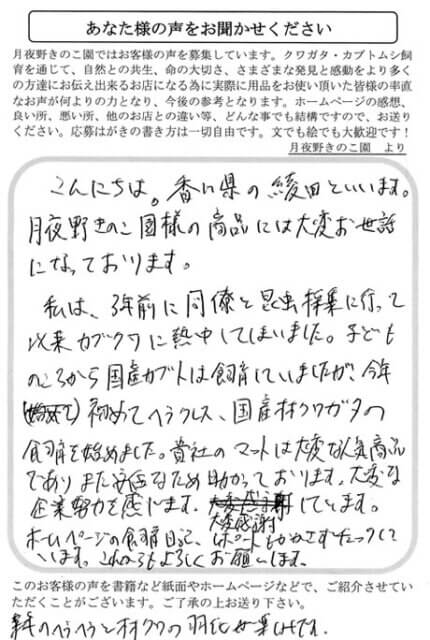 あなた様の声をお聞かせください
月夜野きのこ園ではお客様の声を募集しています。クワガタ・カブトムシ飼
育を通じて、自然との共生、命の大切さ、さまざまな発見と感動をより多く
の方達にお伝え出来るお店になる為に実際に用品をお使い頂いた皆様の率直
なお声が何よりの力となり、今後の参考となります。ホームページの感想、
良い所、悪い所、他のお店との違い等、どんな事でも結構ですので、お送り
ください。応募はがきの書き方は一切自由です。文でも絵でも大歓迎です！
月夜野きのこ園 より
こんにちは。香川県の綾田といいます。
月夜野きのこ園様の商品には大変お世話
になっております。
私は、3年前に同僚と昆虫採集に行って
以来カブクワに熱中してしまいました。子ども
のころから国産カブトは飼育していましたが、今年
(始めて) 初めてヘラクレス、国産オオクワガタの
飼育を始めました。貴社のマットは大変な人気商品
でありまた安価なため助かっております。大変な
企業努力を感じます。大変感謝しています。
ホームページの飼育日記、レポートもかかさずチェックして
います。これからもよろしくお願いします。
このお客様の声を書籍など紙面やホームページなどで、ご紹介させてい
ただくことがございます。ご了承の上お送り下さい。
来年のヘラヘラとオオクワの羽化が楽しみです。